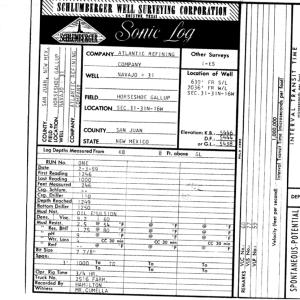 SCHLUMBERGER WELL SURVEYING CORPORATION
HOUSTON, TEXAS
Sonic Log
SCHLUMBERGER
COUNTY SAN JUAN, NEW MEX.
FIELD HORSESHOE GALLUP
COMPANY ATLANTIC REFINING COMPANY
COMPANY ATLANTIC REFINING
COMPANY
WELL NAVAJO # 31
FIELD HORSESHOE GALLUP
LOCATION SEC.31-31N-16W
COUNTY SAN JUAN
STATE NEW MEXICO
Other Surveys
I-ES
Location of Well
630' FR S/L
2036' FR W/L
SEC.31-31N-16W
Elevation: K.B.
or G.L.
Log Depths Measured From KB Ft. above GL
RUN No. ONE
Date
First Reading 1246
Last Reading 1000
Feet Measured 246
Csg. Schlum.
Csg. Driller
Depth Reached 1249
Bottom Driller 1250
Mud Nat. OIL EMULSION
Dens. Visc.
Mud Resist.
Res. BHT
pH
Wtr. Loss CC 30 min CC 30 min CC 30 min
Rmf
Bit Size 7.7/8"
Spac.
To To To
Opr. Rig Time 3/4 HR.
Truck No. 2516 FARM.
Recorded By HAMILTON
Witness MR.CUMELLA
REMARKS
INTERVAL TRANSIT TIME
Interval Transit Time (Microseconds per foot)
1,000,000
Velocity (feet per second)
SPONTANEOUS-POTENTIAL